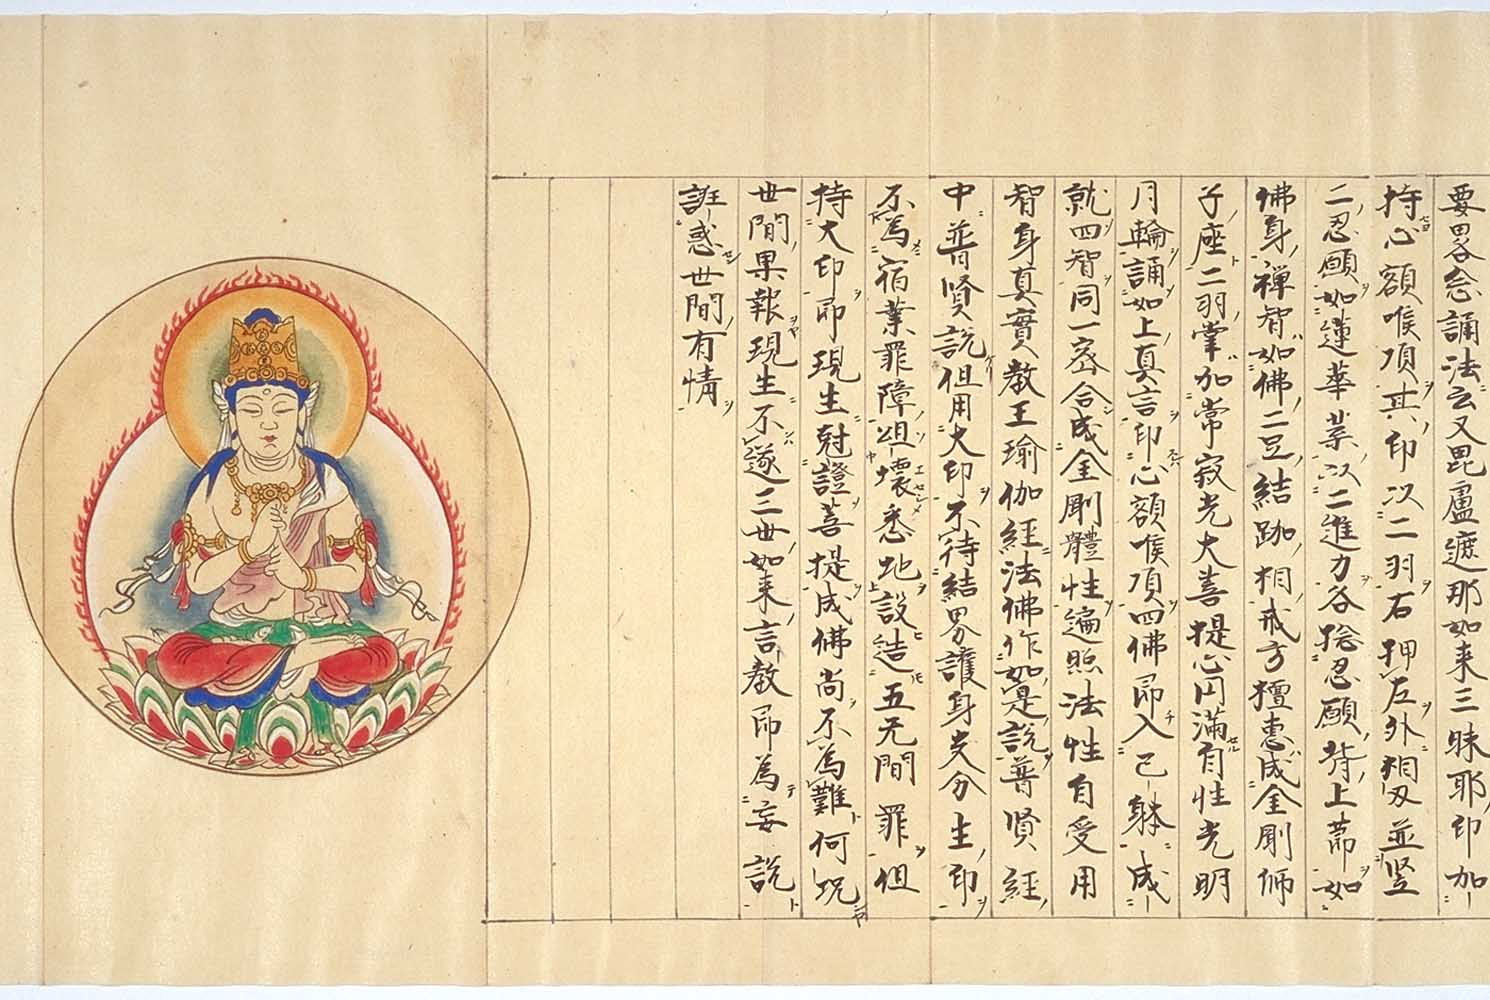 要畧念誦法云又毘盧遮那如来三昧耶印加
持心額喉頂其印以二羽右押左外相叉並竪
二忍願如蓮華葉以二進力各捻忍願背上節如
佛身禪智如佛二足結跏相戒方檀恵成金剛師
子座二羽掌加常寂光大菩提心円満自性光明
月輪誦如上真言印心額喉頂四佛即入己躰成
就四智同一密合成金剛體性遍照法性自受用
智身真實教王瑜伽經法佛作如是説普賢經
中普賢説但用大印不待結界護身炎分生印
不為宿業罪障俎壊悉地設造五无間罪但
持大印即現生尅證菩提成佛尚不為難何況
世間果報現生不遂三世如来言教即為妄説
誑惑世間有情